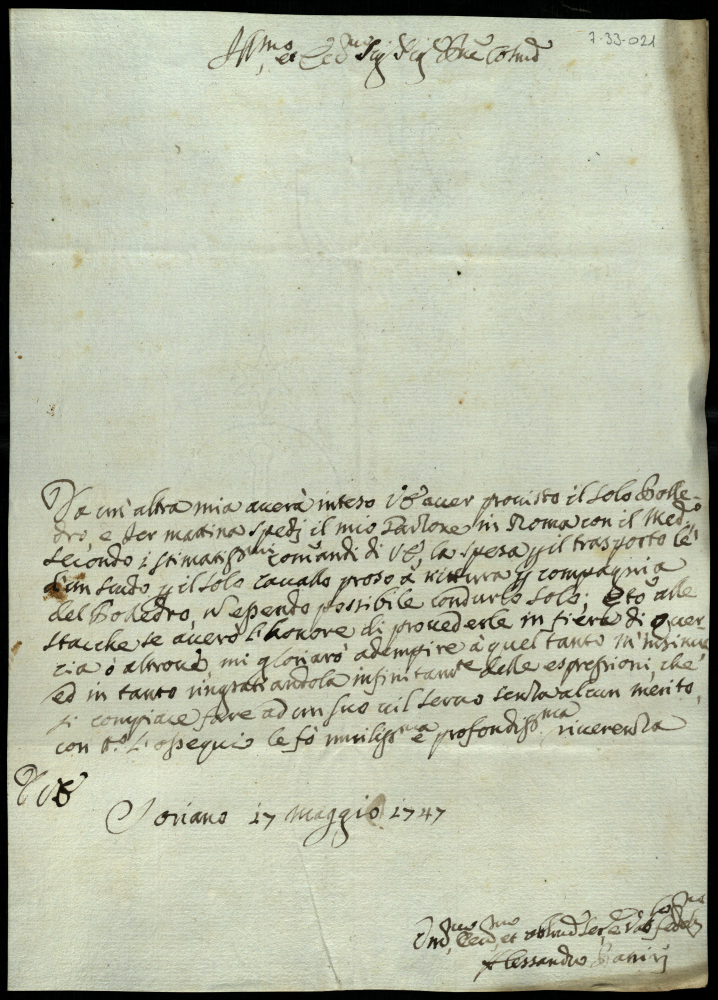 7-33-021
Illmo, et Eccmo Sig Sig Pne Colmo
Da un'altra mia averà inteso VE aver provisto il solo Polle-
dro, e Ier mattina spedj il mio Garzone in Roma con il Medo
secondo i stimatissmi comandi di VE, la spesa p il trasporto è
d'un scudo p il solo cavallo preso à vittura p compagnia
del Polledro, nō essendo possibile condurlo solo; E tō alle
stacche se averò l'honore di provederle in fiera di Quer
cia ò altrove, mi gloriarò adempire à quel tanto m'insinua
ed in tanto ringratiandola infinitamte delle espressioni, che
si compiace fare ad un suo vil servo senza alcun merito,
con tto l'ossequio le fò umilissma e profondissma riverenza
D VE
Soriano 17 Maggio 1747
Alessandro